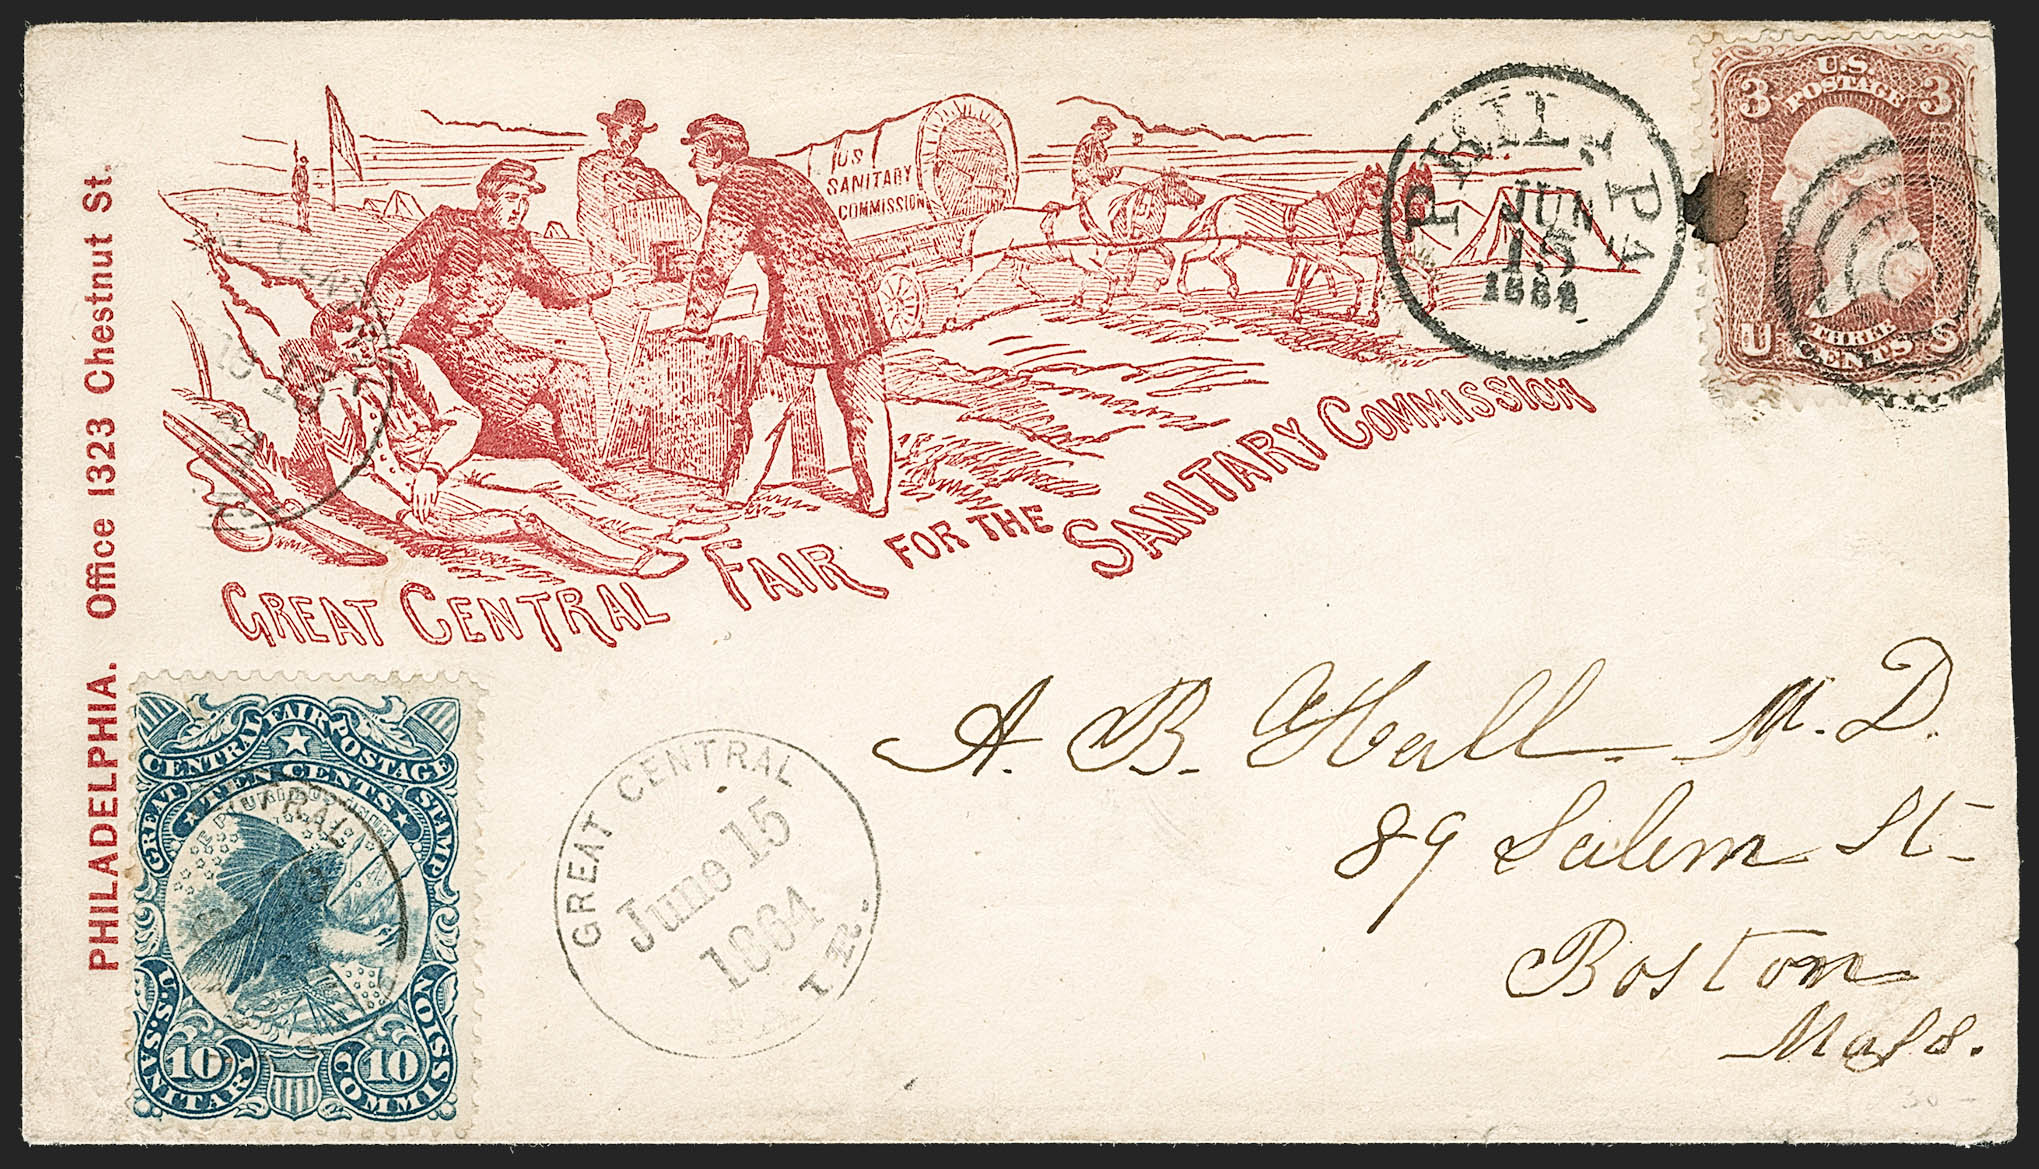 PHILADELPHIA. Office 1323 Chestnut St.
U.S.
SANITARY
COMMISSION
GREAT CENTRAL FAIR FOR THE SANITARY COMMISSION
PHIL, PA
JUN
15
1864
U.S.
POSTAGE
3 3
THREE
CENTS
U S
GREAT CENTRAL FAIR POSTAGE STAMP
TEN CENTS
E PLURIBUS UNUM
10 10
U.S. SANITARY COMMISSION
GREAT CENTRAL FAIR.
June 15
1864
A. B. Hall M. D.
89 Salem St
Boston
Mass.